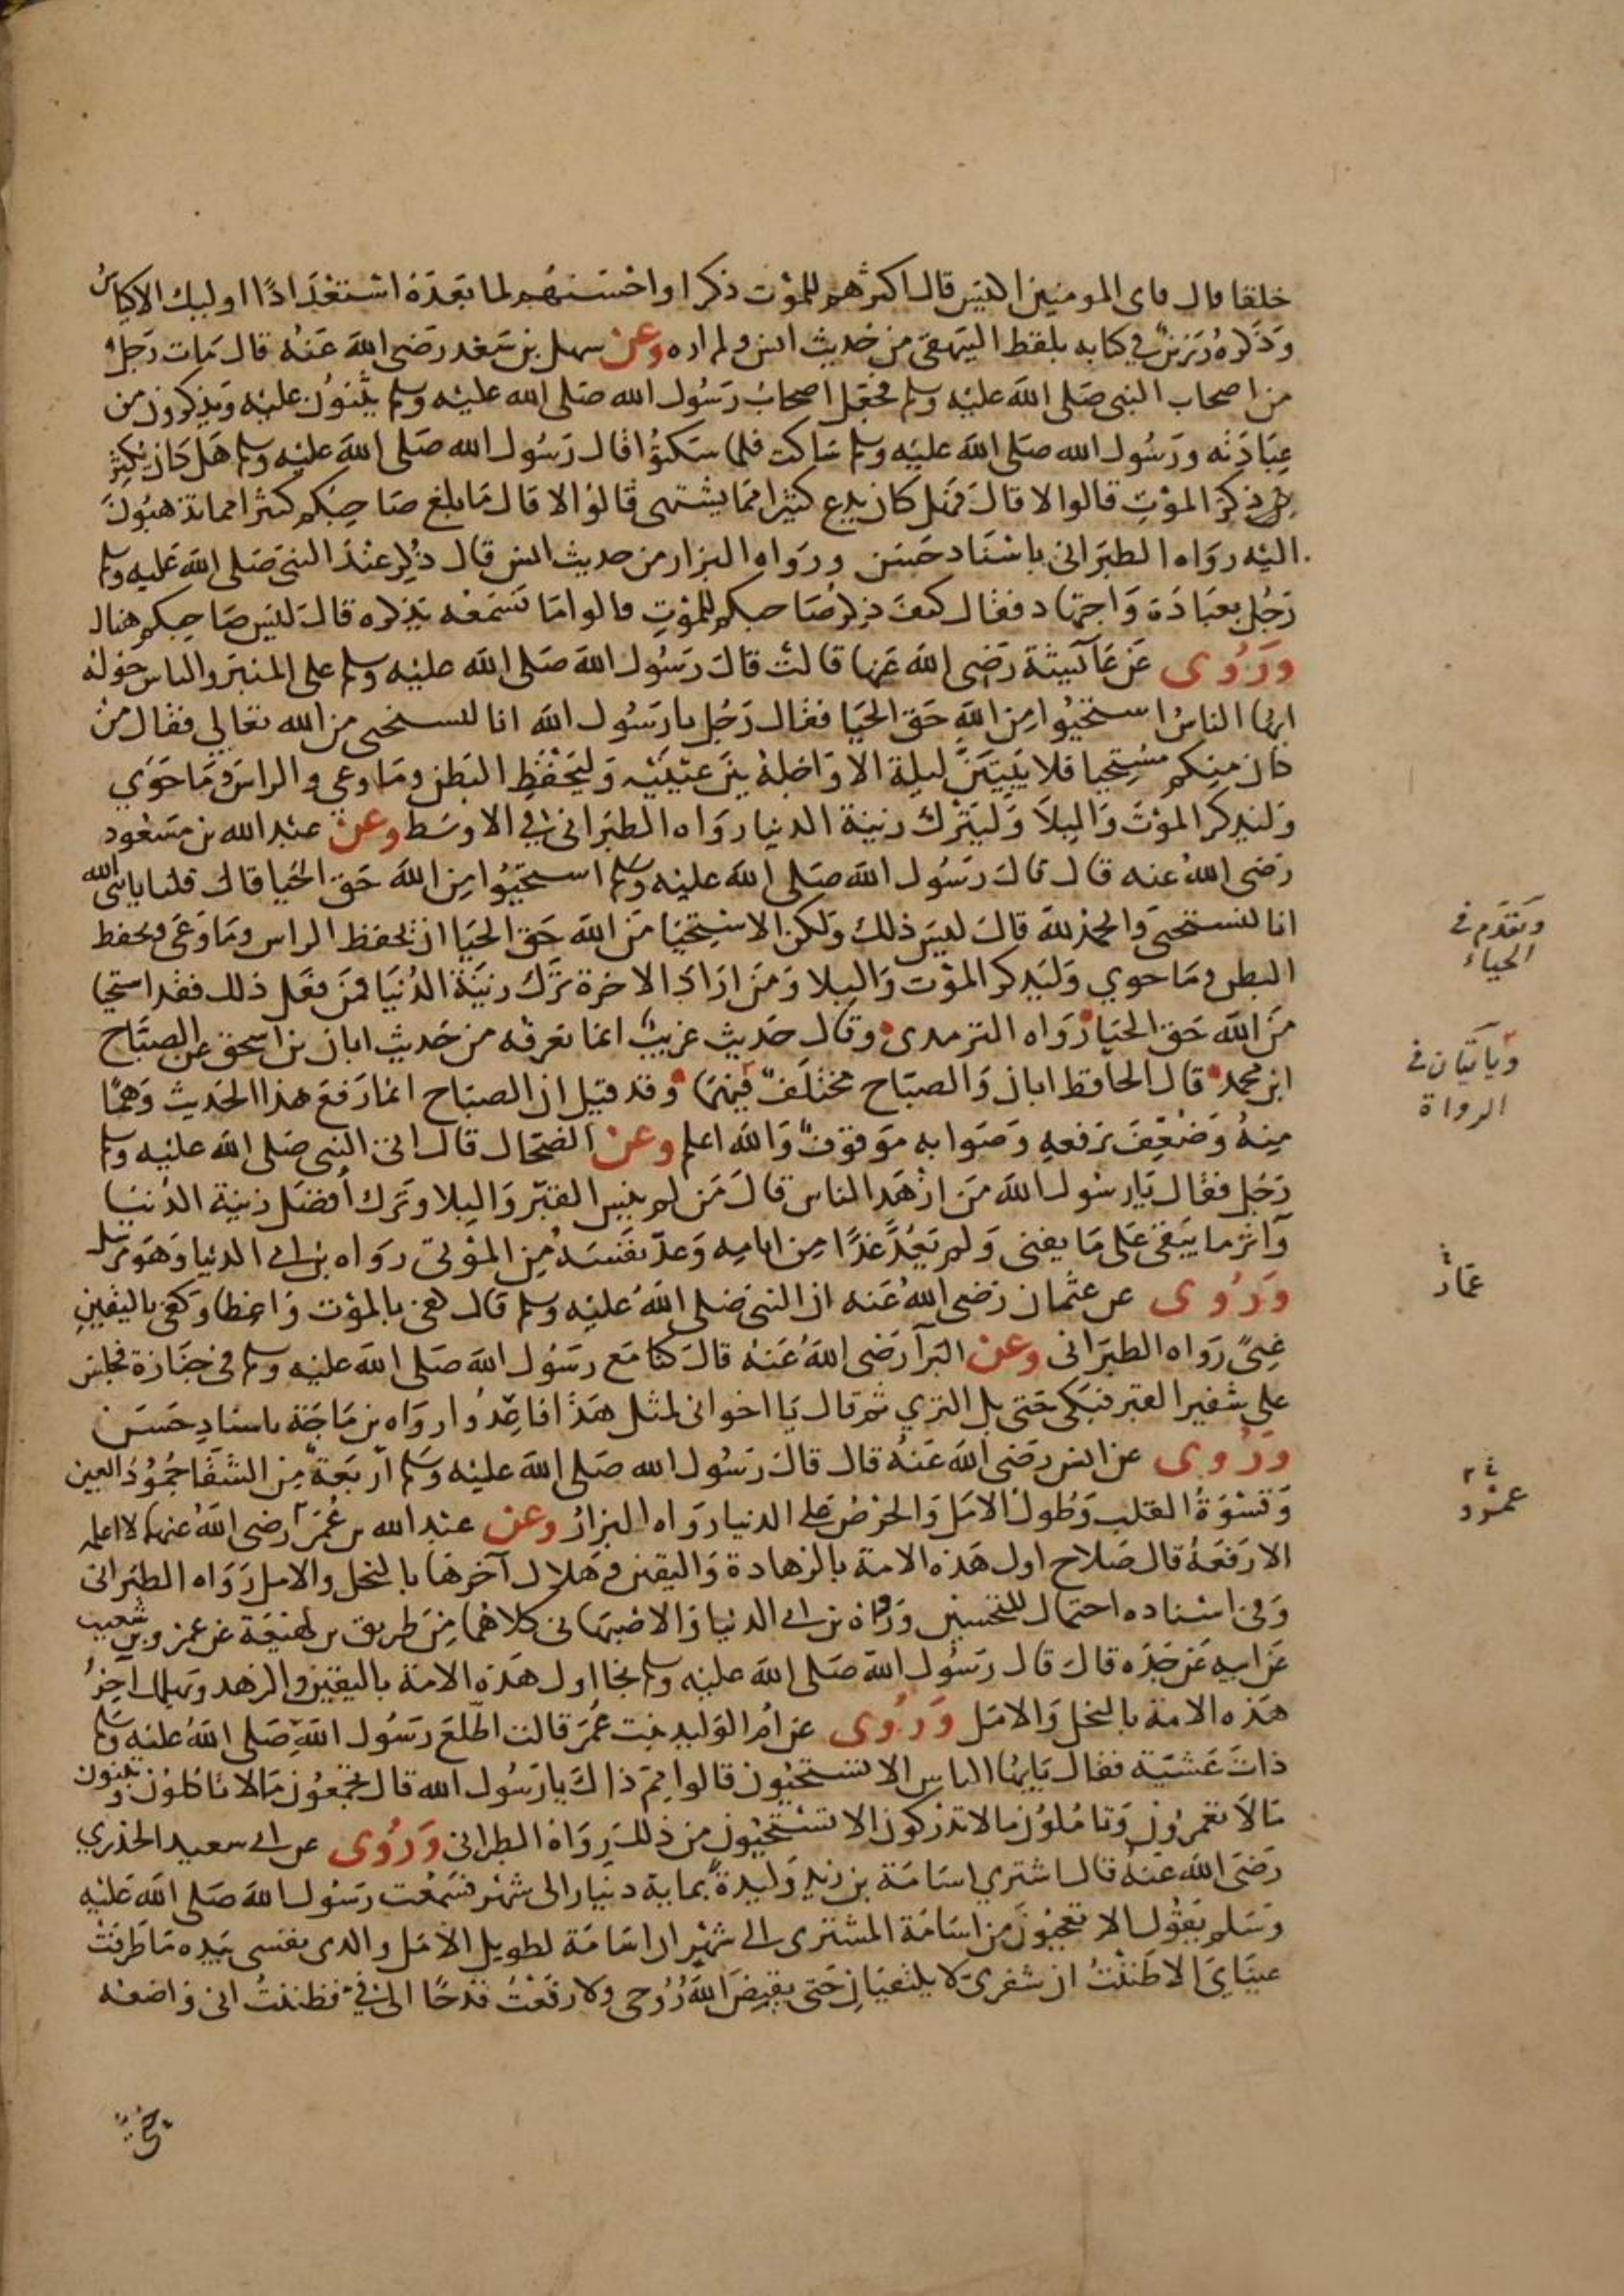 خلقا قال فاى المومنين اكيس قال اكثرهم للموت ذكرا واحسنهم لما بعده استعدادا اوليك الاكياس
وذكره رزين في كتابه بلفظ البيهقي من حديث انس ولم اره وعن سهل بن سعد رضى الله عنه قال مات رجل
من اصحاب النبى صلى الله عليه وسلم فجعل اصحاب رسول الله صلى الله عليه وسلم يثنون عليه ويذكرون من
عبادته ورسول الله صلى الله عليه وسلم ساكت فلما سكتوا قال رسول الله صلى الله عليه وسلم هل كان يكثر
ذكر الموت قالوا لا قال فهل كان يدع كثيرا مما يشتهى قالوا لا قال ما بلغ صاحبكم كثيرا مما تذهبون
اليه رواه الطبرانى باسناد حسن ورواه البزار من حديث انس قال ذكر عند النبى صلى الله عليه وسلم
رجل بعبادة واجتهاد فقال كيف ذكر صاحبكم للموت قالوا ما نسمعه يذكره قال ليس صاحبكم هناك
وروى عن عآئشة رضى الله عنها قالت قال رسول الله صلى الله عليه وسلم على المنبر والناس حوله
ايها الناس استحيوا من الله حق الحيا فقال رجل يا رسول الله انا لنستحى من الله تعالى فقال من
كان منكم مستحيا فلا يبيتن ليلة الا واجله بين عينيه وليحفظ البطن وما وعى والراس وما حوى
وليذكر الموت والبلا وليترك زينة الدنيا رواه الطبرانى في الاوسط وعن عبد الله بن مسعود
رضى الله عنه قال قال رسول الله صلى الله عليه وسلم استحيوا من الله حق الحيا قال قلنا يا نبى الله
انا لنستحى والحمد لله قال ليس ذلك ولكن الاستحيا من الله حق الحيا ان تحفظ الراس وما وعى وتحفظ
البطن وما حوي وليذكر الموت والبلا ومن اراد الاخرة ترك زينة الدنيا فمن فعل ذلك فقد استحيا
من الله حق الحيا رواه الترمذى وقال حديث غريب انما نعرفه من حديث ابان بن اسحق عن الصباح
ابن محمد قال الحافظ ابان والصباح مختلف فيهما وقد قيل ان الصباح انما رفع هذا الحديث وهما
منه وضعف برفعه وصوابه موقوف والله اعلم وعن الضحاك قال اتى النبى صلى الله عليه وسلم
رجل فقال يا رسول الله من ازهد الناس قال من لم ينس القبر والبلا وترك افضل زينة الدنيا
وآثر ما يبقى على ما يفنى ولم يعد غدا من ايامه وعد نفسه من الموتى رواه بن ابى الدنيا وهو مرسل
وروى عن عثمان رضى الله عنه ان النبى صلى الله عليه وسلم قال كفى بالموت واعظا وكفى باليقين
غنى رواه الطبرانى وعن البرآ رضى الله عنه قال كنا مع رسول الله صلى الله عليه وسلم فى جنازة فجلس
على شفير القبر فبكى حتى بل الثري ثم قال يا اخوانى لمثل هذا فاعدوا رواه بن ماجة باسناد حسن
وروى عن انس رضى الله عنه قال قال رسول الله صلى الله عليه وسلم اربعة من الشقا جمود العين
وقسوة القلب وطول الامل والحرص على الدنيا رواه البزار وعن عبد الله بن عمر رضى الله عنهما لا اعلمه
الا رفعه قال صلاح اول هذه الامة بالزهادة واليقين وهلاك آخرها بالبخل والامل رواه الطبرانى
وفى اسناده احتمال للتحسين ورواه بن ابى الدنيا والاصبهانى كلاهما من طريق بن لهيعة عن عمرو بن شعيب
عن ابيه عن جده قال قال رسول الله صلى الله عليه وسلم نجا اول هذه الامة باليقين والزهد ويهلك آخر
هذه الامة بالبخل والامل وروى عن ام الوليد بنت عمر قالت اطلع رسول الله صلى الله عليه وسلم
ذات عشية فقال يايها الناس الا تستحيون قالوا مم ذاك يا رسول الله قال تجمعون مالا تاكلون وتبنون
مالا تعمرون وتاملون مالا تدركون الا تستحيون من ذلك رواه الطبرانى وروى عن ابى سعيد الخدري
رضى الله عنه قال اشتري اسامة بن زيد وليدة بماية دينار الى شهر فسمعت رسول الله صلى الله عليه
وسلم يقول الا تعجبون من اسامة المشترى الى شهر ان اسامة لطويل الامل والذى نفسى بيده ما طرفت
عيناي الا ظننت ان شفرى لا يلتقيان حتى يقبض الله روحى ولا رفعت قدحا الى في فظننت انى واضعه
وتقدم فى
الحياء
وياتيان فى
الرواة
عماد
عمرو